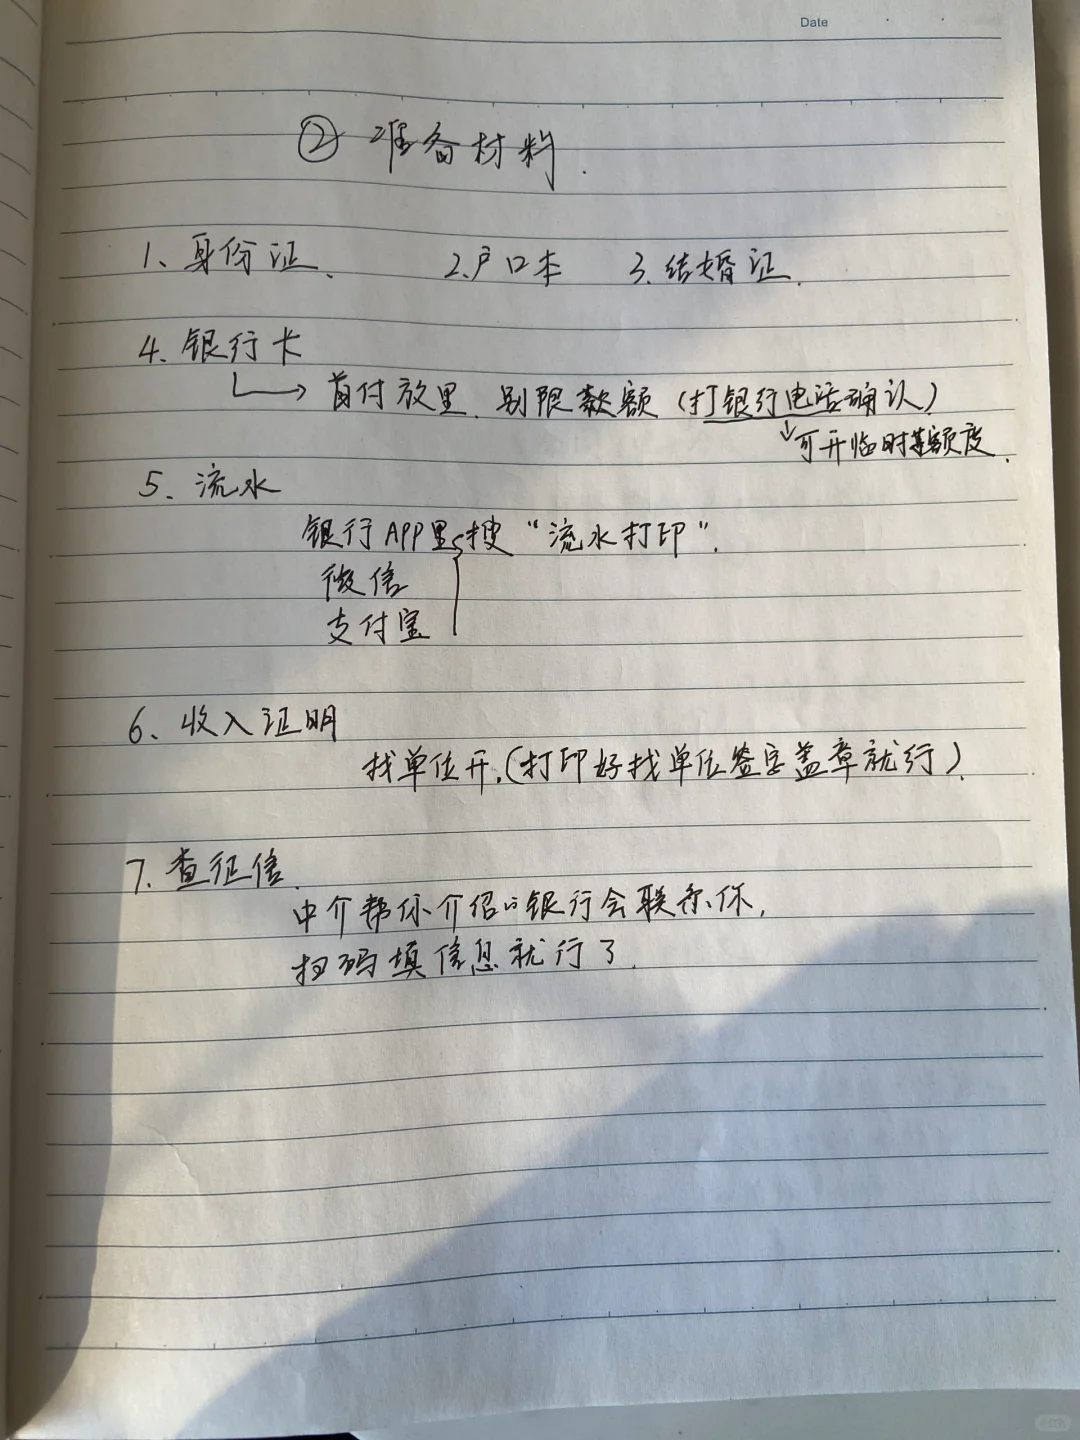 Date
② 准备材料.
1、身份证、 2、户口本 3、结婚证.
4、银行卡
首付放里、别限款额（打银行电话确认）
可开临时额度.
5、流水
银行APP里搜“流水打印”.
微信
支付宝
6、收入证明
找单位开.（打印好找单位签字盖章就行）.
7.查征信.
中介帮你介绍的银行会联系你,
扫码填信息就行了.